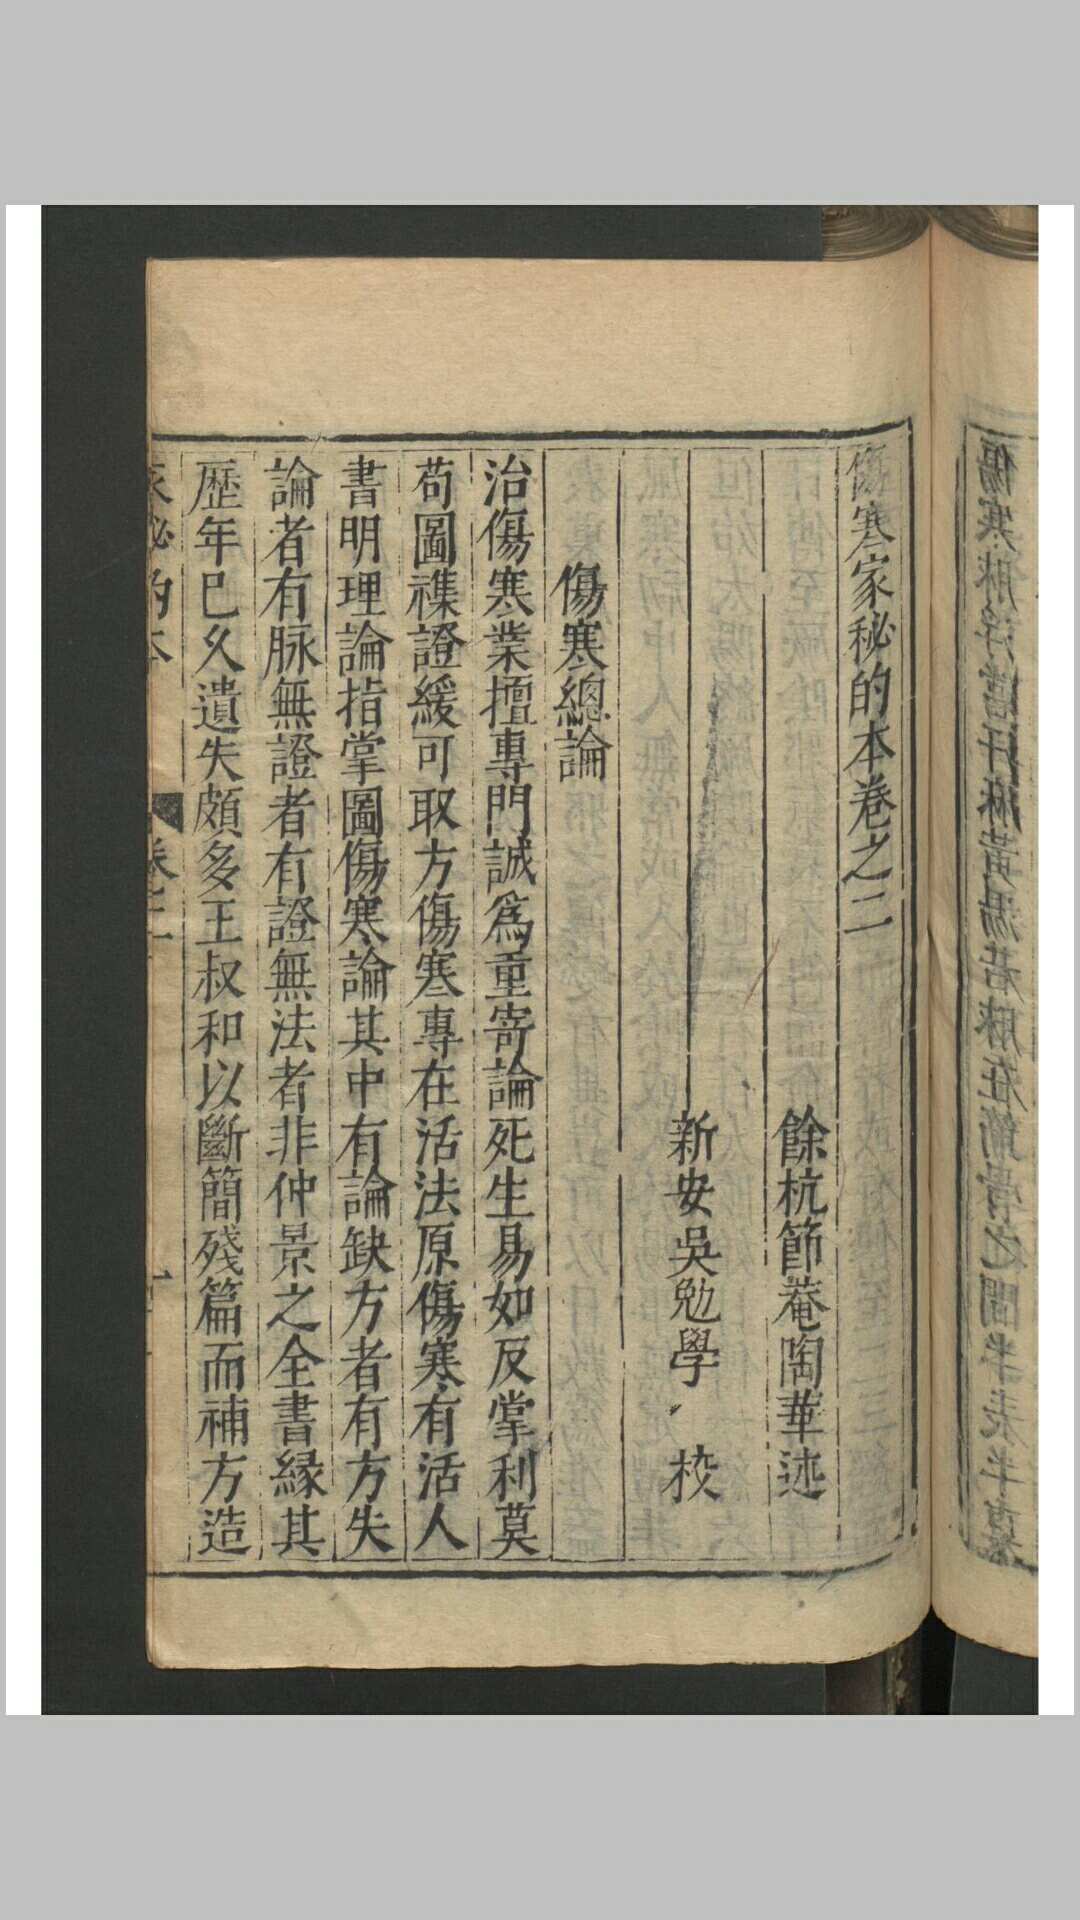 傷寒家秘的本卷之二
餘杭節菴陶華述
新安吳勉學 校
傷寒總論
治傷寒業擅專門誠爲重寄論死生易如反掌利莫
苟圖襍證緩可取方傷寒專在活法原傷寒有活人
書明理論指掌圖傷寒論其中有論缺方者有方失
論者有脉無證者有證無法者非仲景之全書緣其
歷年巳久遺失頗多王叔和以斷簡殘篇而補方造
家秘的本 卷之二